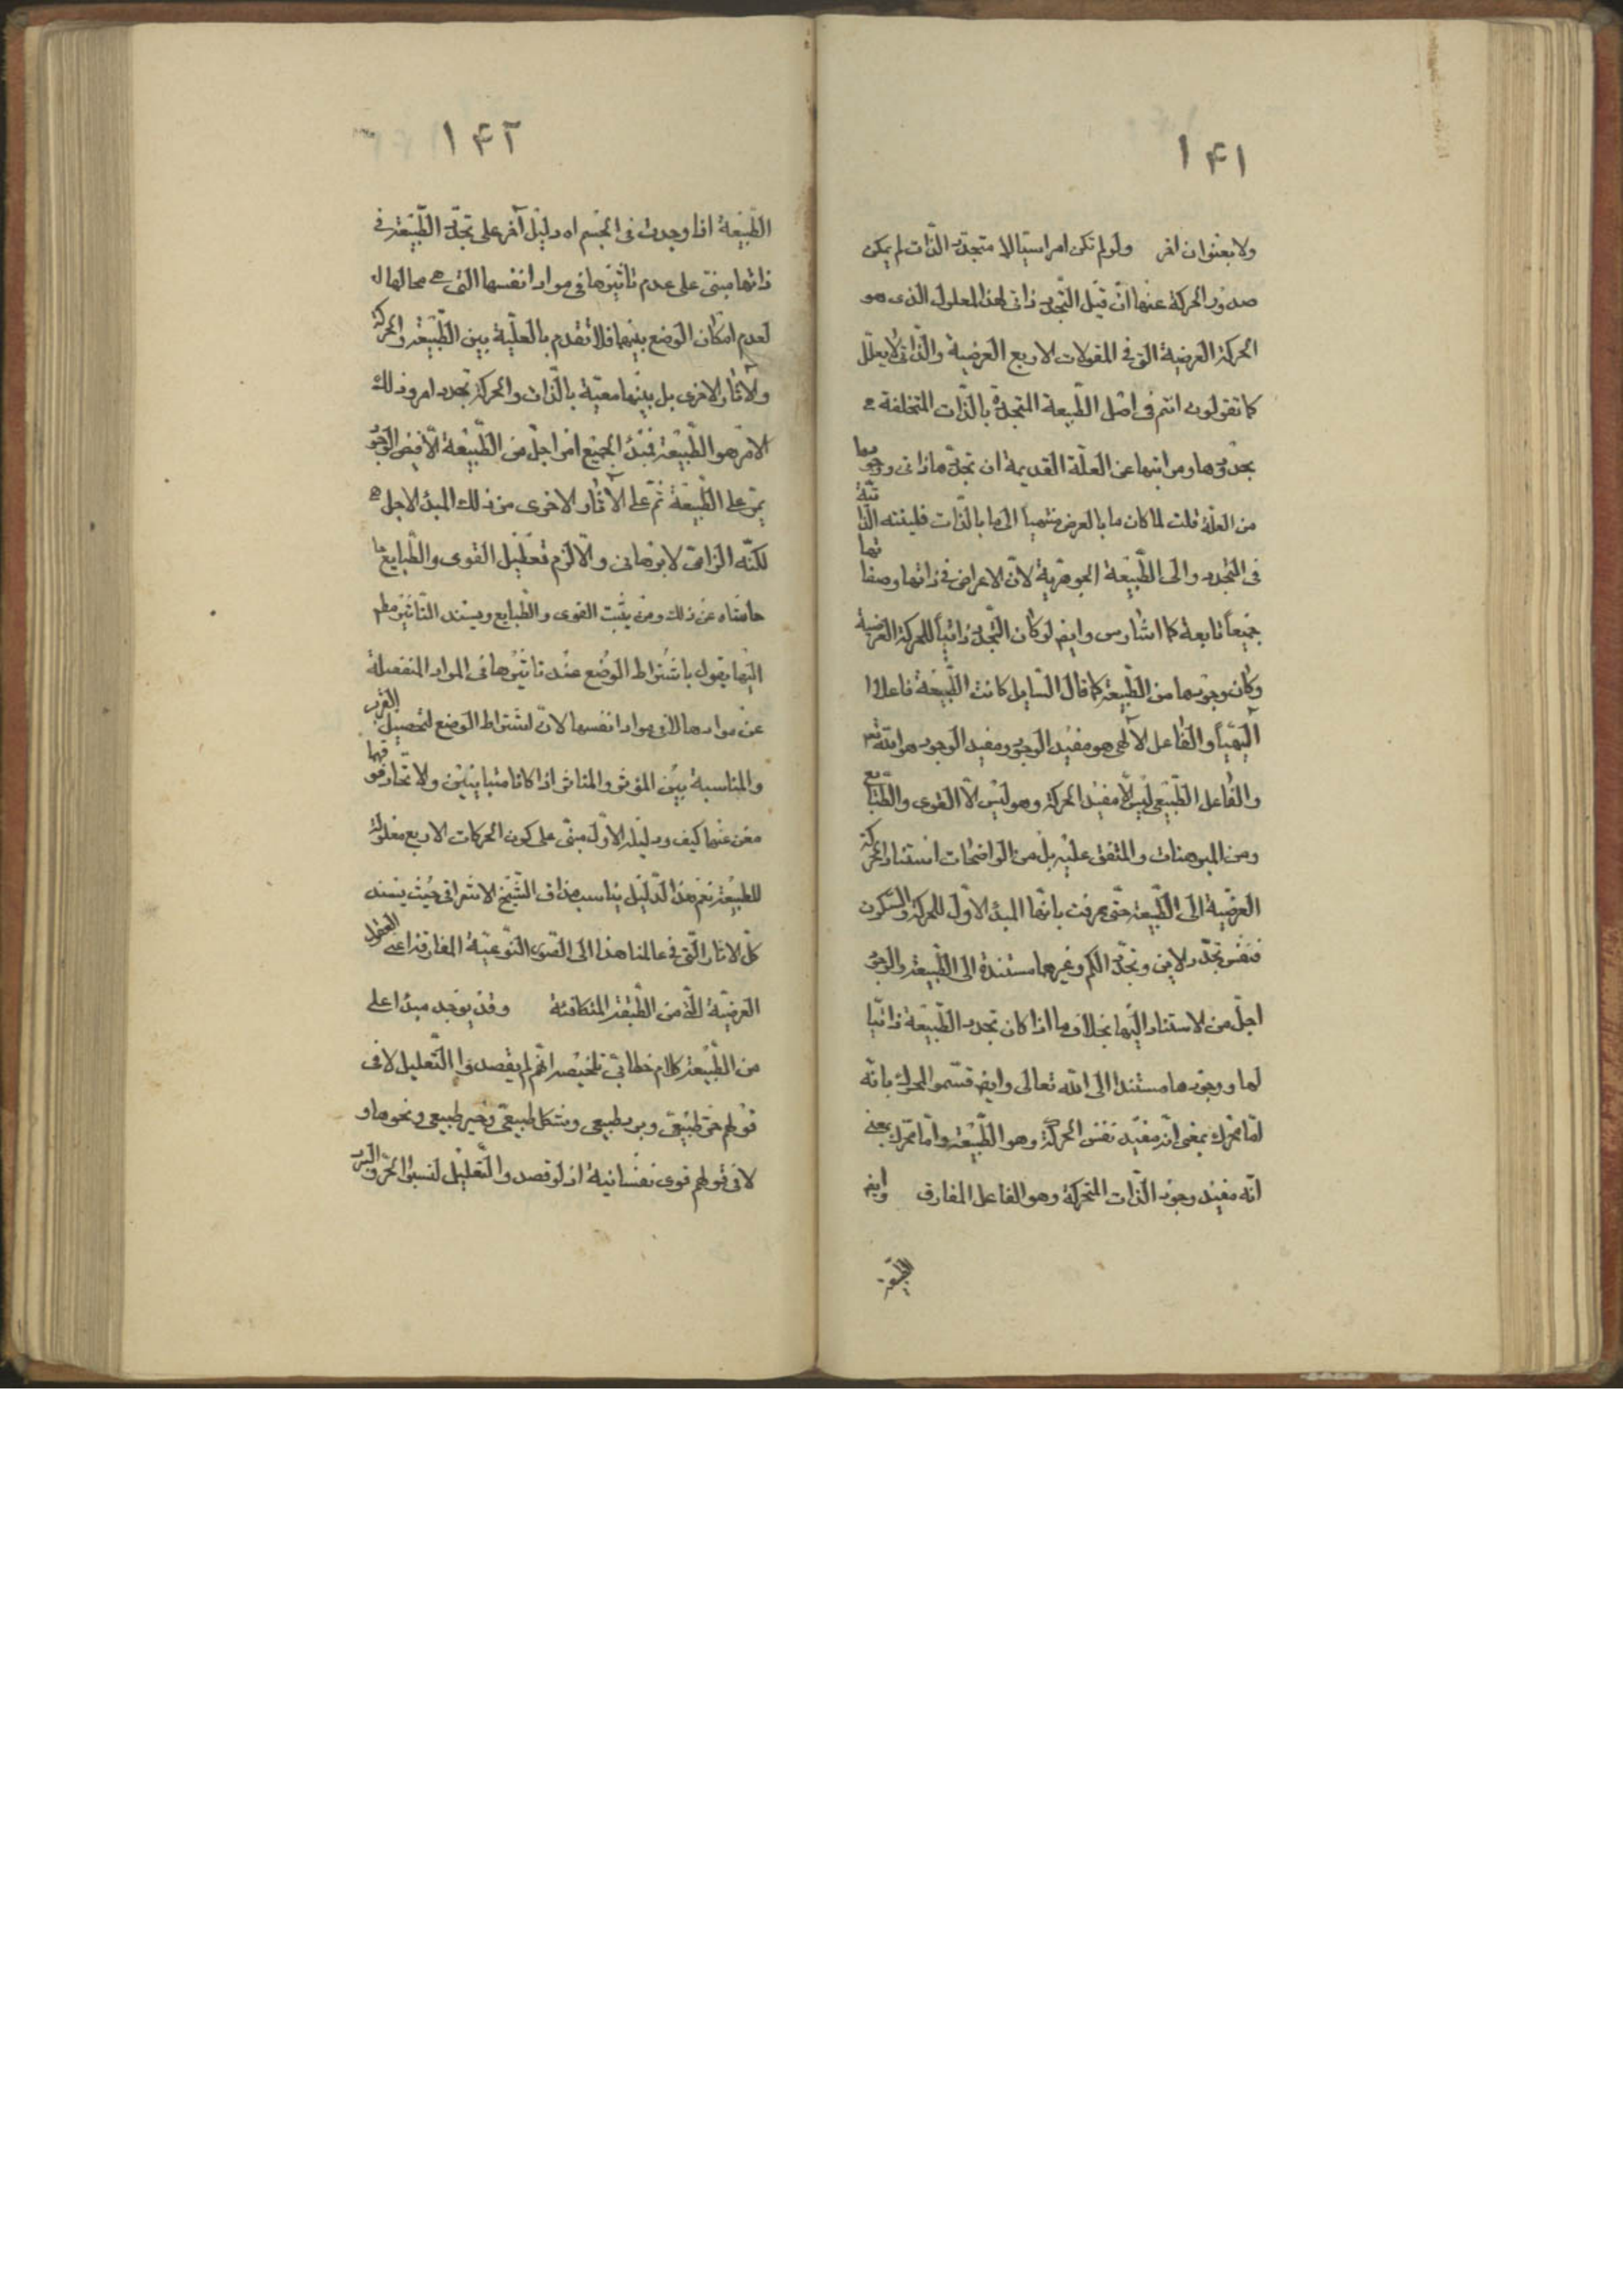 ۱۴۱
ولا بعنوان اخر ولو لم تكن امرا سيالا متجدد الذات لم يمكن
صدور الحركة عنها ان قيل التجدد ذاتى لهذا المعلول الذى هو
الحركة العرضية التى فى المقولات الاربع العرضية والذاتى لا يعلل
كما تقولون انتم فى اصل الطبيعة المتجددة بالذات المتخلفة
بحدودها ومراتبها عن العلة القديمة ان تجددها ذاتى ووجودها
من العلة قلت لما كان ما بالعرض منتهيا الى ما بالذات فلينته الذاتية
فى التجدد والى الطبيعة الجوهرية لان الاعراض فى ذاتها وصفاتها
جميعا تابعة كما اشار س وايض لو كان التجدد ذاتيا للحركة العرضية
وكان وجودها من الطبيعة كما قال السايل كانت الطبيعة فاعلا
الهيا والفاعل الالهى هو مفيد الوجود ومفيد الوجود هو الله تع
والفاعل الطبيعى ليس الا مفيد الحركة وهو ليس الا القوى والطبايع
ومن المبرهنات والمتفق عليه بل من الواضحات استناد الحركة
العرضية الى الطبيعة حتى عرفت بانها المبدء الاول للحركة والسكون
فنفس تجدد الاين وتجدد الكم وغيرهما مستندة الى الطبيعة والوجود
اجل من الاستناد اليها بخلاف ما اذا كان تجدد الطبيعة ذاتيا
لها ووجودها مستندا الى الله تعالى وايض قسموا المحرك بانه
اما محرك بمعنى انه مفيد نفس الحركة وهو الطبيعة واما محرك بمعنى
انه مفيد وجود الذات المتحركة وهو الفاعل المفارق وايض
الطبيعة
۱۴۲
الطبيعة اذا وجدت فى الجسم اه دليل آخر على تجدد الطبيعة فى
ذاتها مبنى على عدم تاثيرها فى مواد انفسها التى هى محالها
لعدم امكان الوضع بينهما فلا تقدم بالعلية بين الطبيعة والحركة
والآثار الاخرى بل بينهما معية بالذات والحركة تجدد امر وذلك
الامر هو الطبيعة فمبدء الجميع امر اجل من الطبيعة الا فيض الوجود
يمر على الطبيعة ثم على الآثار الاخرى من ذلك المبدء الاجل
لكنه الزامى لا برهانى والا لزم تعطيل القوى والطبايع
حاشاه عن ذلك ومن يثبت القوى والطبايع ويسند التاثير مط
اليها يقول باشتراط الوضع عند تاثيرها فى المواد المنفصلة
عن موادها لا فى مواد انفسها لان اشتراط الوضع لتحصيل القرب
والمناسبة بين المؤثر والمتاثر اذا كانا متباينين ولا تحاد قواها
مغن عنهما كيف ودليله الاول مبنى على كون الحركات الاربع معلولة
للطبيعة نعم هذا الدليل يناسب مذاق الشيخ الاشراقى حيث يسند
كل الاثار التى فى عالمنا هذا الى الصور النوعية المفارقة اعنى العقول
العرضية التى من الطبقة المتكافئة وقد يوجد مبدا اعلى
من الطبيعة كلام خطابى تلخيصه انهم لم يقصدوا التعليل لا فى
قولهم حر طبيعى وبرد طبيعى وشكل طبيعى وحيز طبيعى ونحوها و
لا فى قولهم قوى نفسانية اذ لو قصدوا التعليل لنسبوا الحر والبرد